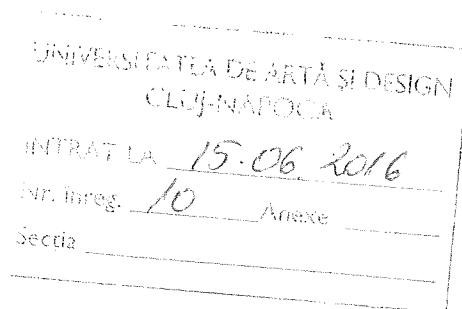 UNIVERSITATEA DE ARTĂ ȘI DESIGN
CLUJ-NAPOCA
INTRAT LA 15.06.2016
Nr. înreg. 10 Anexe
Secția